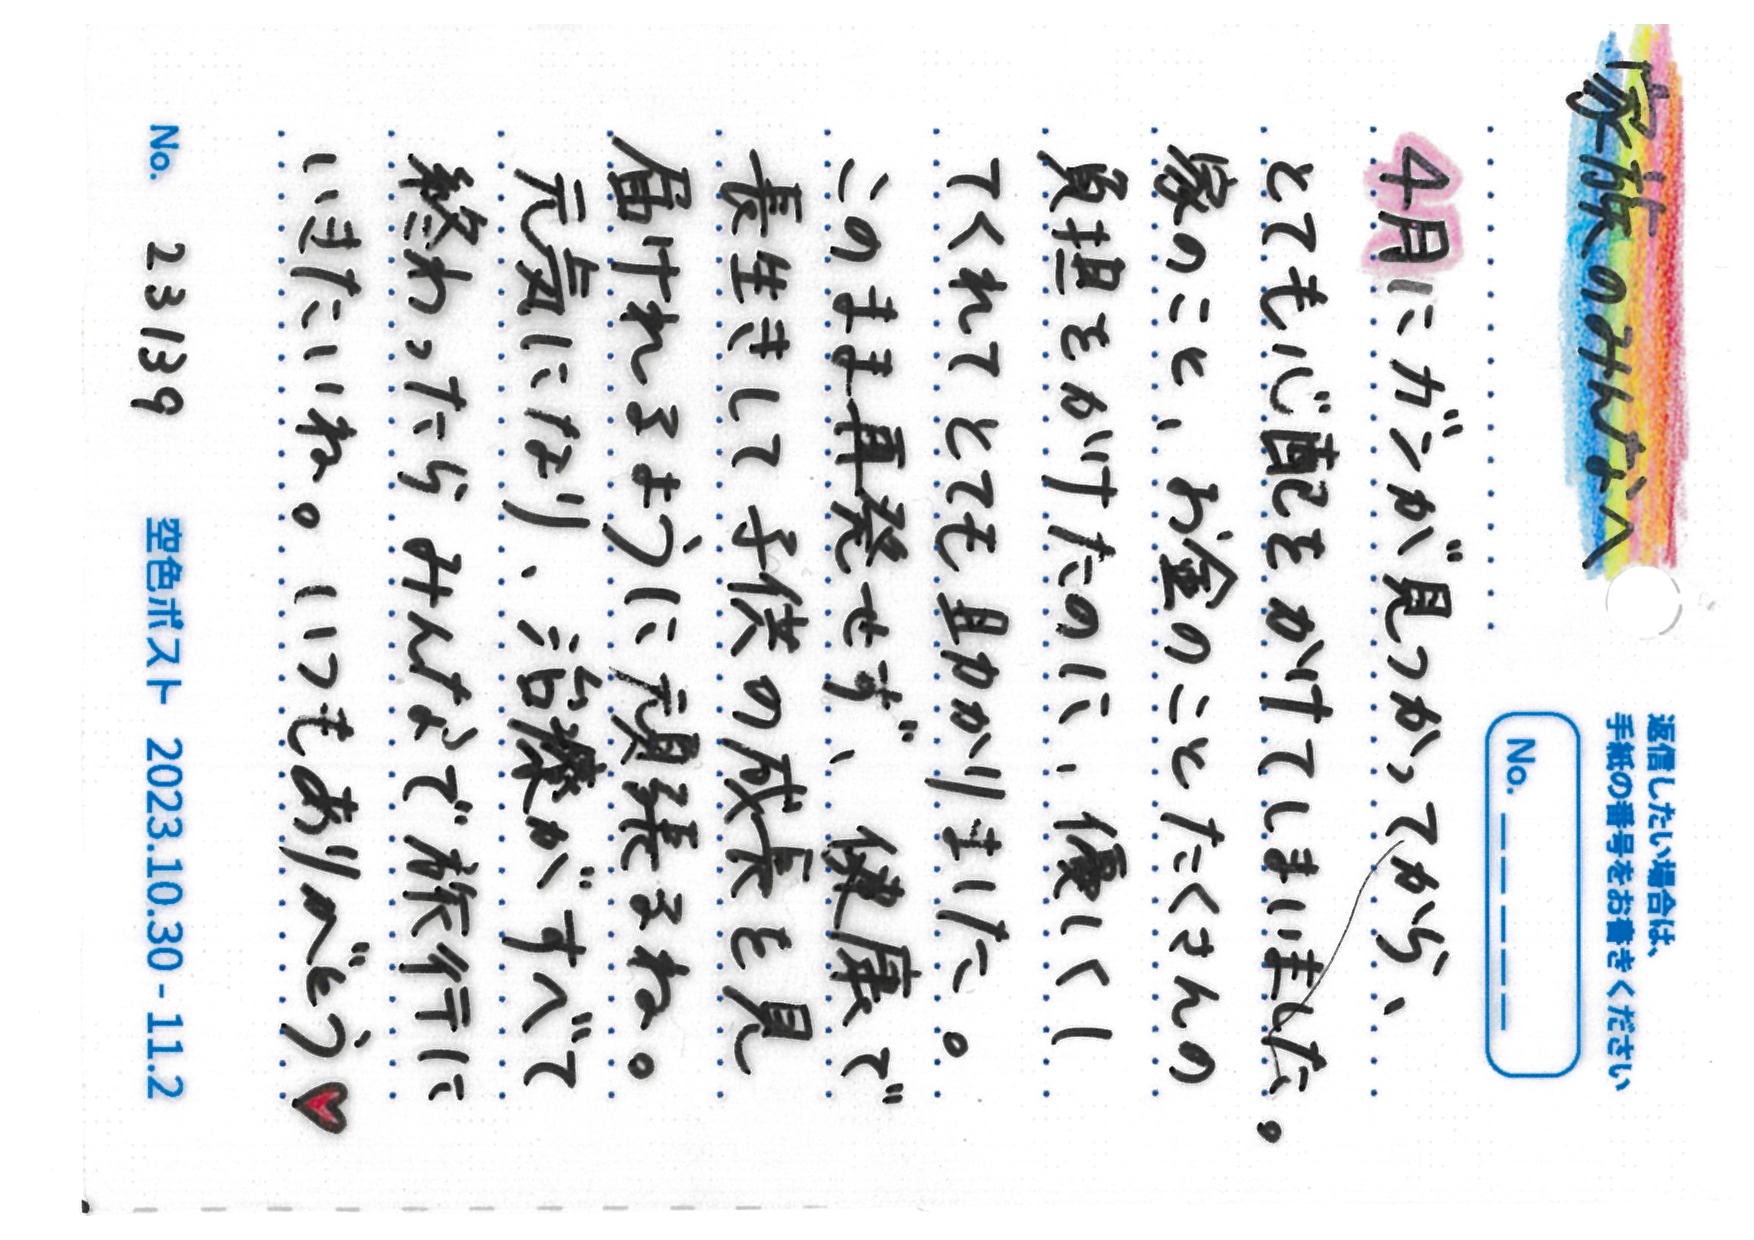 家族のみんなへ
返信したい場合は、
手紙の番号をお書きください
No. _ _ _ _ _
4月にガンが見つかってから、
とても心配をかけてしまいました。
家のこと、お金のことたくさんの
負担をがけたのに、優しくし
てくれてとても助かりました。
このまま再発せず、健康で
長生きして子供の成長を見
届けれるように頑張るね。
元気になり、治療がすべて
終わったらみんなで旅行に
いきたいね。いつもありがとう♥
No. 23139
空色ポスト 2023.10.30 - 11.2